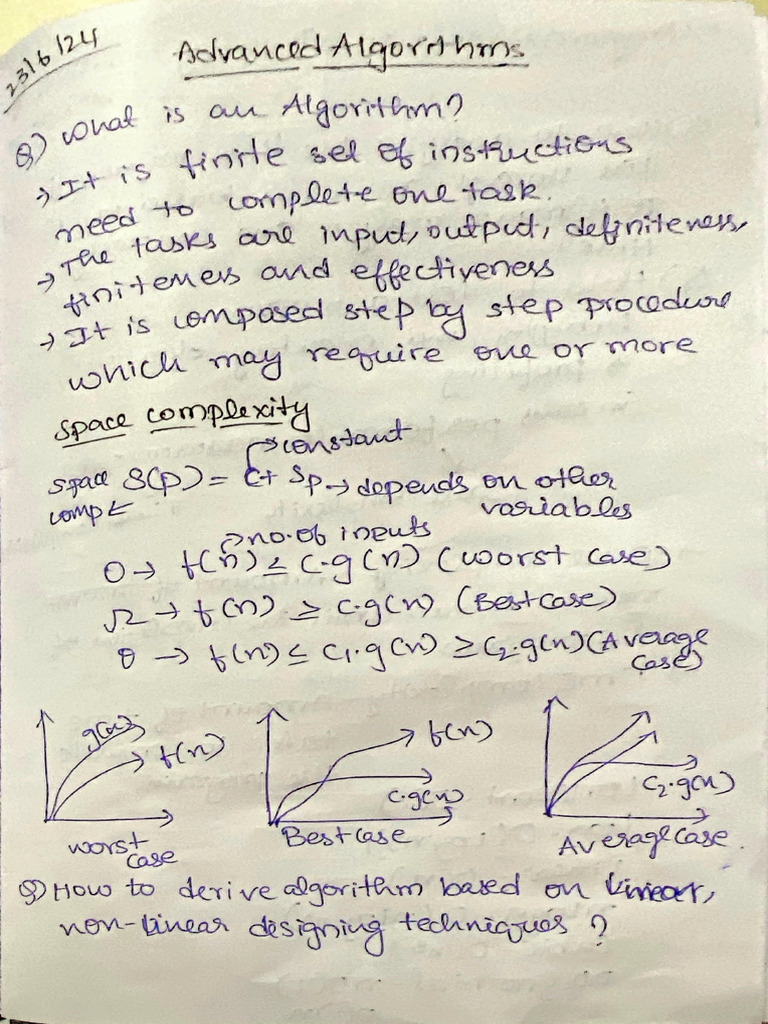 23/6/24
Advanced Algorithms
Q) What is an Algorithm?
→ It is finite set of instructions
need to complete one task.
→ The tasks are input, output, definiteness,
finiteness and effectiveness
→ It is composed step by step procedure
which may require one or more
Space complexity
→ constant
space S(p) = C + Sp → depends on other
comp variables
→ no. of inputs
O → f(n) ≤ C·g(n) (worst case)
Ω → f(n) ≥ C·g(n) (Best case)
θ → f(n) ≤ C1·g(n) ≥ C2·g(n) (Average
case)
g(n) f(n) f(n)
C·g(n) C2·g(n)
worst Best case Average case
case
Q) How to derive algorithm based on Linear,
non-linear designing techniques?